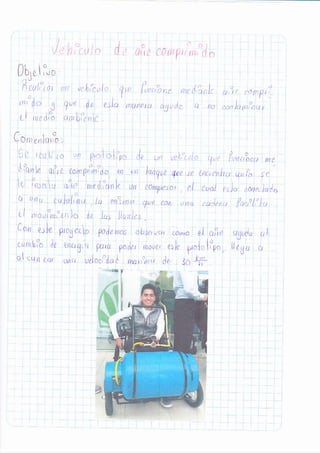 Vehículo de aire comprimido
Objetivo:
Realizar un vehículo que funcione mediante aire compri-
mido y que de esta manera ayude a no contaminar
el medio ambiente.
Comentario:
Se realizo un prototipo de un vehículo que funciona me
diante aire comprimido en un tanque que se encuentra vacio se
le inserta aire mediante un compresor, el cual esta conectado
a una catalina, la misma que con una cadena facilita
el movimiento de las llantas.
Con este proyecto podemos observar como el aire ayuda al
cambio de energía para poder mover este prototipo, llega a
alcanzar una velocidad maxima de : 30